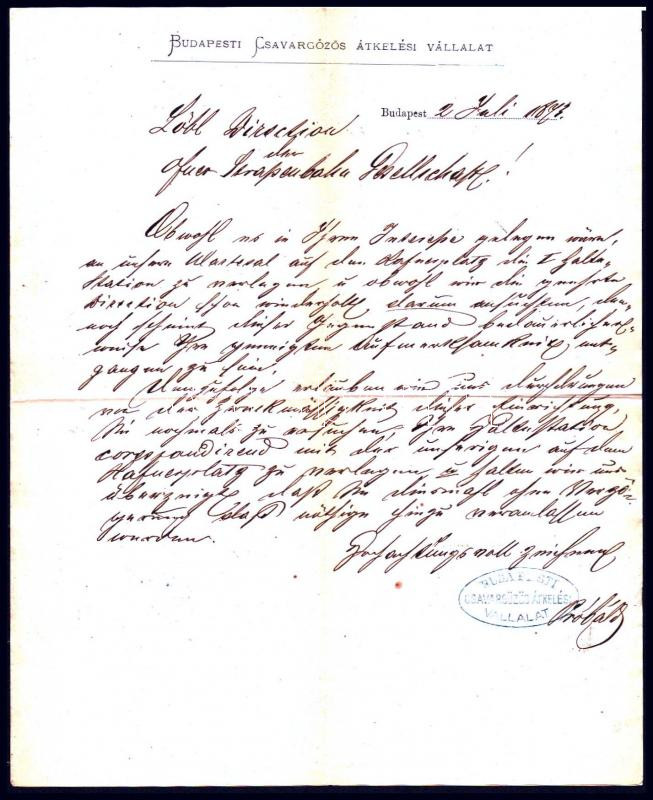 BUDAPESTI CSAVARGŐZÖS ÁTKELÉSI VÁLLALAT
Budapest 2 Juli 1878.
Löbl Direction
der
Ofner Straßenbahn Gesellschaft!
Obwohl es in Ihrem Interesse gelegen wäre,
an unsern Wartesal auf den Hafnerplatz die Halte-
station zu verlegen, u obwohl wir die geehrte
Direction schon wiederholt darum ansuchten, den-
noch scheint dieser Gegenstand bedauerlicher
weise Ihre Aufmerksamkeit ent-
gangen zu sein.
Demzufolge erlauben wir uns durchdrungen
von der Zweckmässigkeit dieser Einrichtung,
Sie nochmals zu ersuchen, Ihre Haltestation,
correspondirend mit der unserigen auf dem
Hafnerplatz zu verlegen, u halten wir uns
überzeugt daß Sie diesmahl ohne Verzö-
gerung das nöthige hiezu veranlassen
werden.
Hochachtungsvoll zeichnend
BUDAPESTI
CSAVARGŐZÖS ÁTKELÉSI
VÁLLALAT